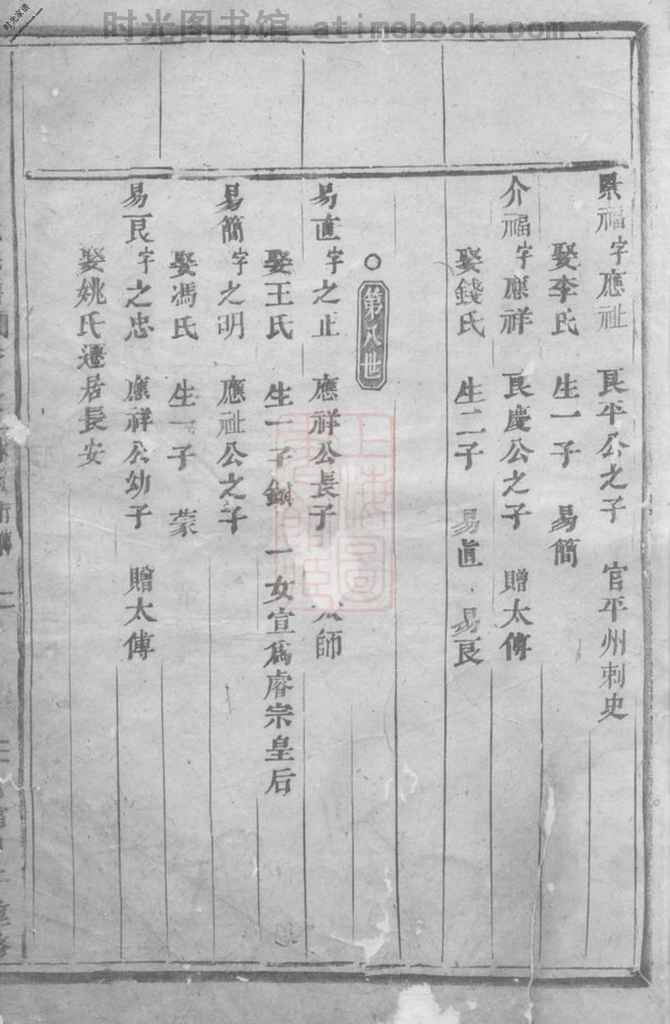 时光图书馆 atimebook.com
景福字應祉 艮平公之子 官平州刺史
娶李氏 生一子 易簡
介福字應祥 艮慶公之子 贈太傅
娶錢氏 生二子 易直 易艮
○第八世
易直字之正 應祥公長子 師
娶王氏 生一子 一女宣爲睿宗皇后
易簡字之明 應祉公之子
娶馮氏 生一子 蒙
易艮字之忠 應祥公幼子 贈太傅
娶姚氏遷居長安